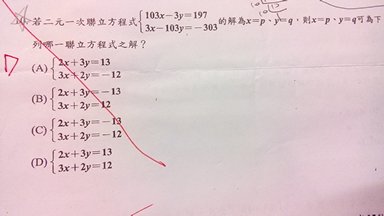 若二元一次聯立方程式 { 103x－3y＝197
3x－103y＝－303 的解為x＝p、y＝q，則x＝p、y＝q可為下
列哪一聯立方程式之解？
(A) { 2x＋3y＝13
3x＋2y＝－12
(B) { 2x＋3y＝－13
3x＋2y＝12
(C) { 2x＋3y＝－13
3x＋2y＝－12
(D) { 2x＋3y＝13
3x＋2y＝12